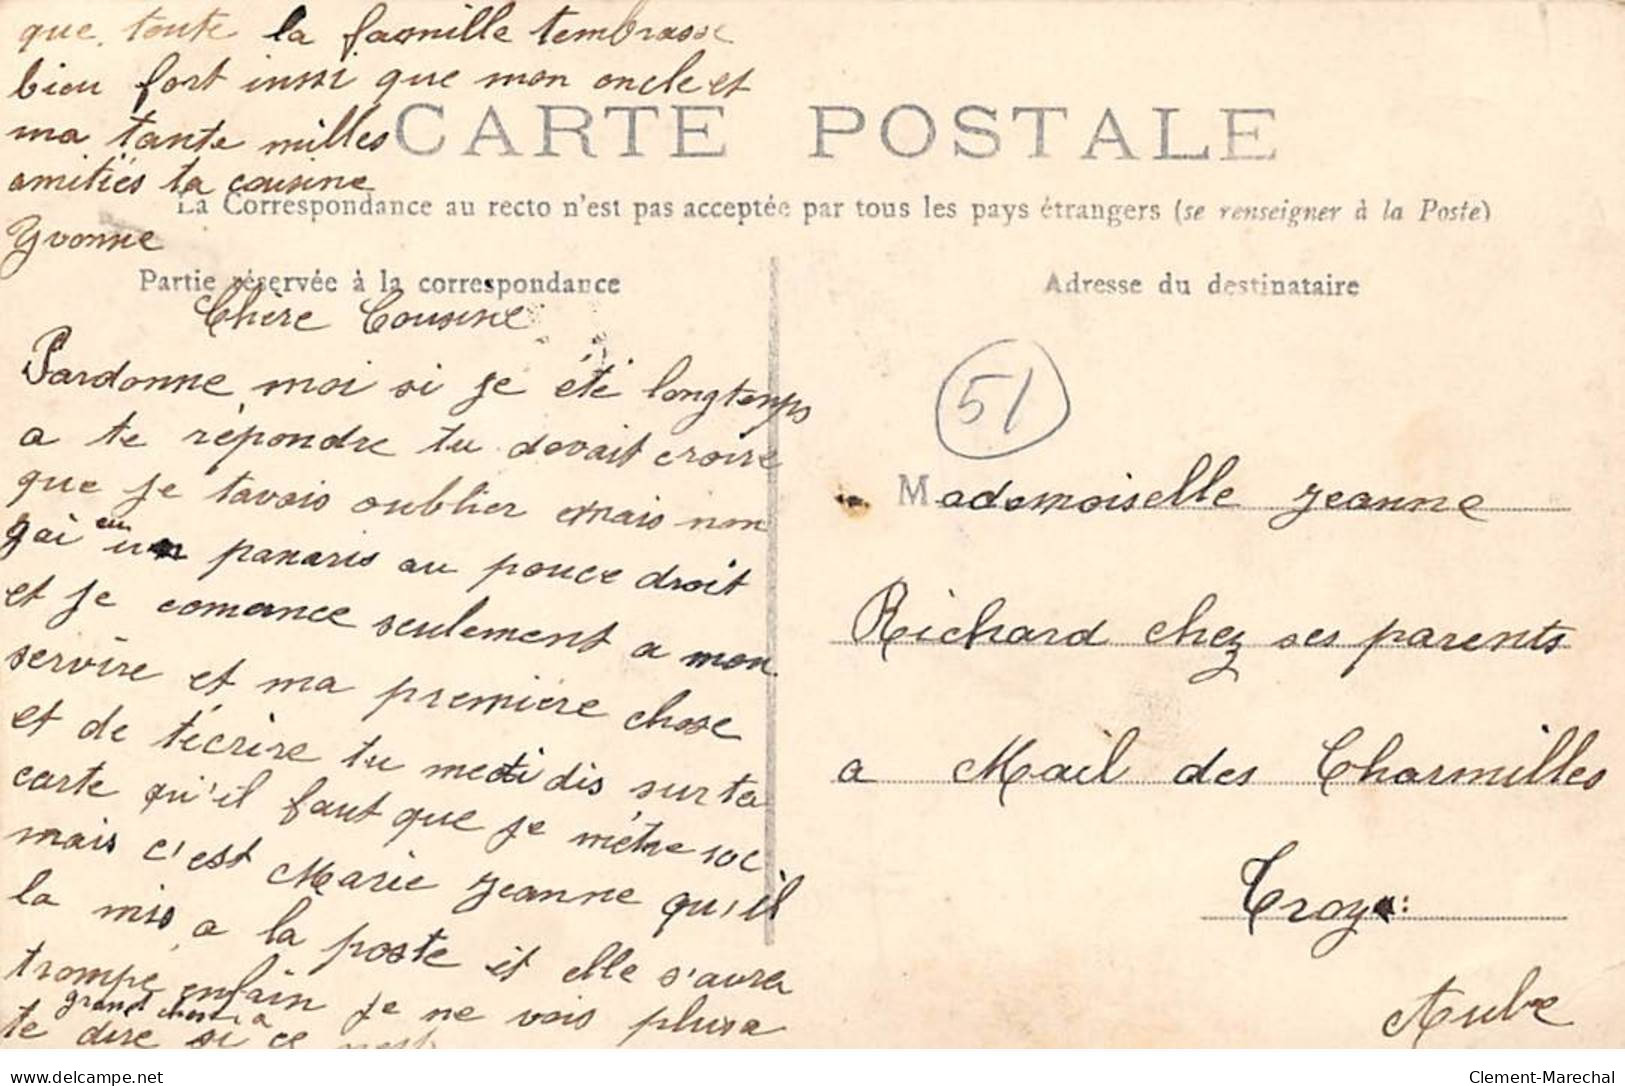 que toute la famille tembrasse
bien fort inssi que mon oncle et
ma tante milles
amitiés ta cousine
Yvonne
CARTE POSTALE
La Correspondance au recto n'est pas acceptée par tous les pays étrangers (se renseigner à la Poste)
Partie réservée à la correspondance
Chère Cousine
Pardonne moi si je été longtemps
a te répondre tu devait croire
que je tavais oublier mais non
gai eu un panaris au pouce droit
et je comence seulement a mon
servire et ma première chose
et de técrire tu me dis sur ta
carte qu'il faut que je mètre
mais c'est Marie Jeanne qu'il
la mis a la poste et elle s'aura
trompe enfain je ne vois plus a
te dire grand chose si ce n'est
Adresse du destinataire
51
Mademoiselle Jeanne
Richard chez ses parents
a Mail des Charmilles
Troyes
Aube
Clement-Marechal